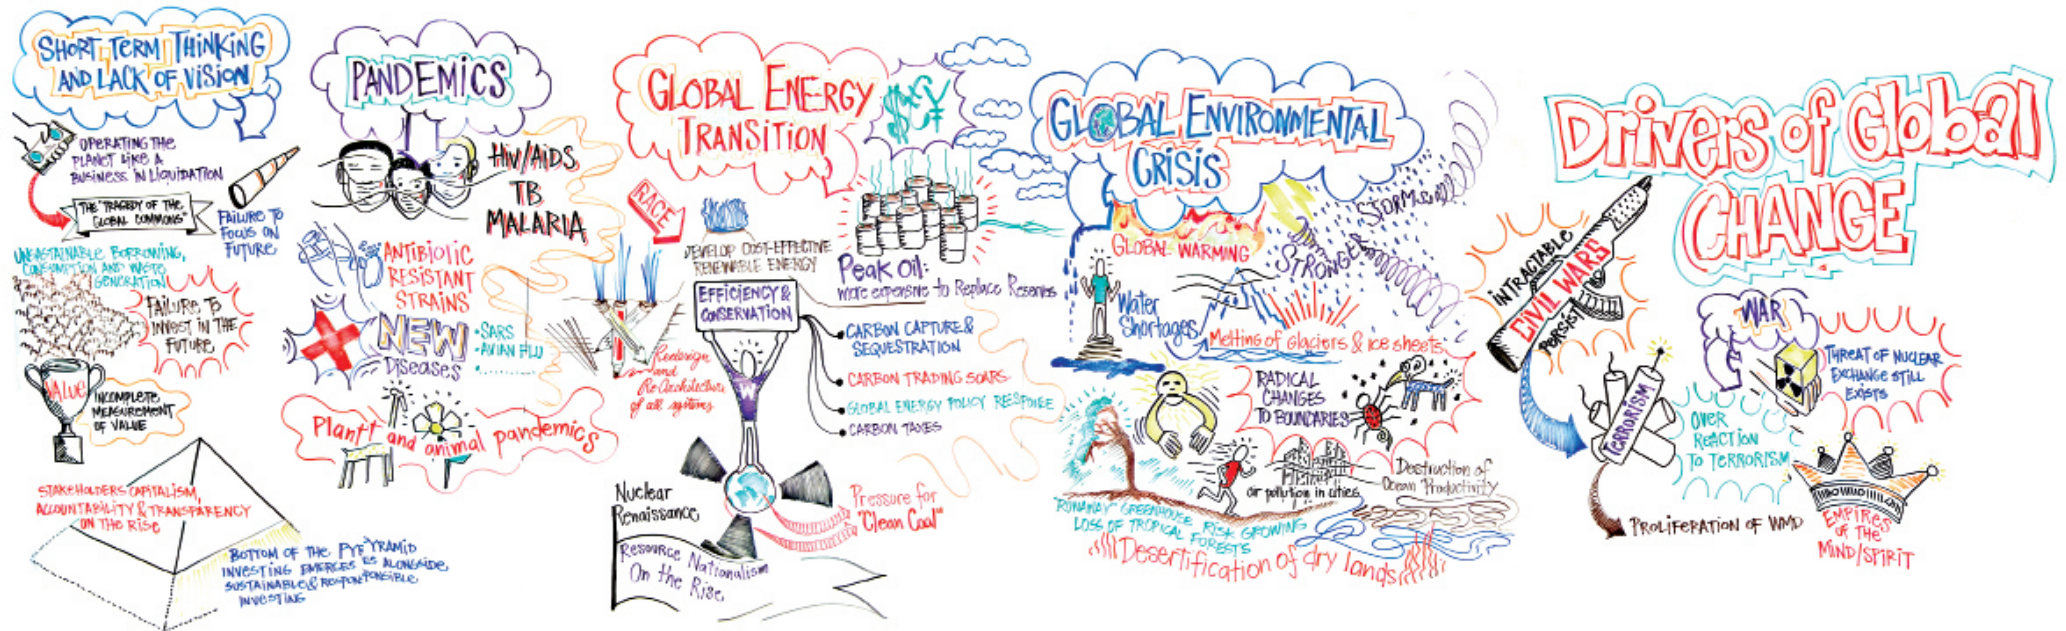 SHORT TERM THINKING
AND LACK OF VISION
OPERATING THE
PLANET LIKE A
BUSINESS IN LIQUIDATION
THE "TRAGEDY OF THE
GLOBAL COMMONS"
FAILURE TO
FOCUS ON
FUTURE
UNSUSTAINABLE BORROWING,
CONSUMPTION AND WASTE
GENERATION
FAILURE TO
INVEST IN THE
FUTURE
VALUE
INCOMPLETE
MEASUREMENT
OF VALUE
STAKEHOLDERS CAPITALISM,
ACCOUNTABILITY & TRANSPARENCY
ON THE RISE
BOTTOM OF THE PYRAMID
INVESTING EMERGES ALONGSIDE
SUSTAINABLE & RESPONSIBLE
INVESTING
PANDEMICS
HIV/AIDS
TB
MALARIA
ANTIBIOTIC
RESISTANT
STRAINS
NEW
Diseases
• SARS
• AVIAN FLU
Plant and animal pandemics
GLOBAL ENERGY
TRANSITION
$€¥
RACE
DEVELOP COST-EFFECTIVE
RENEWABLE ENERGY
Peak Oil:
more expensive to Replace Reserves
EFFICIENCY &
CONSERVATION
Redesign
and
Re-Architecture
of all systems
CARBON CAPTURE &
SEQUESTRATION
CARBON TRADING SOARS
GLOBAL ENERGY POLICY RESPONSE
CARBON TAXES
W
Nuclear
Renaissance
Pressure for
"Clean Coal"
Resource Nationalism
On the Rise
GLOBAL ENVIRONMENTAL
CRISIS
GLOBAL WARMING
STRONGER STORMS
Water
Shortages
Melting of Glaciers & ice sheets
RADICAL
CHANGES
TO BOUNDARIES
air pollution in cities
Destruction of
Ocean Productivity
"RUNAWAY" GREENHOUSE RISK GROWING
LOSS OF TROPICAL FORESTS
Desertification of dry lands
Drivers of Global
CHANGE
INTRACTABLE
CIVIL WARS
PERSIST
WAR
THREAT OF NUCLEAR
EXCHANGE STILL
EXISTS
TERRORISM
OVER
REACTION
TO TERRORISM
PROLIFERATION OF WMD
EMPIRES
OF THE
MIND/SPIRIT